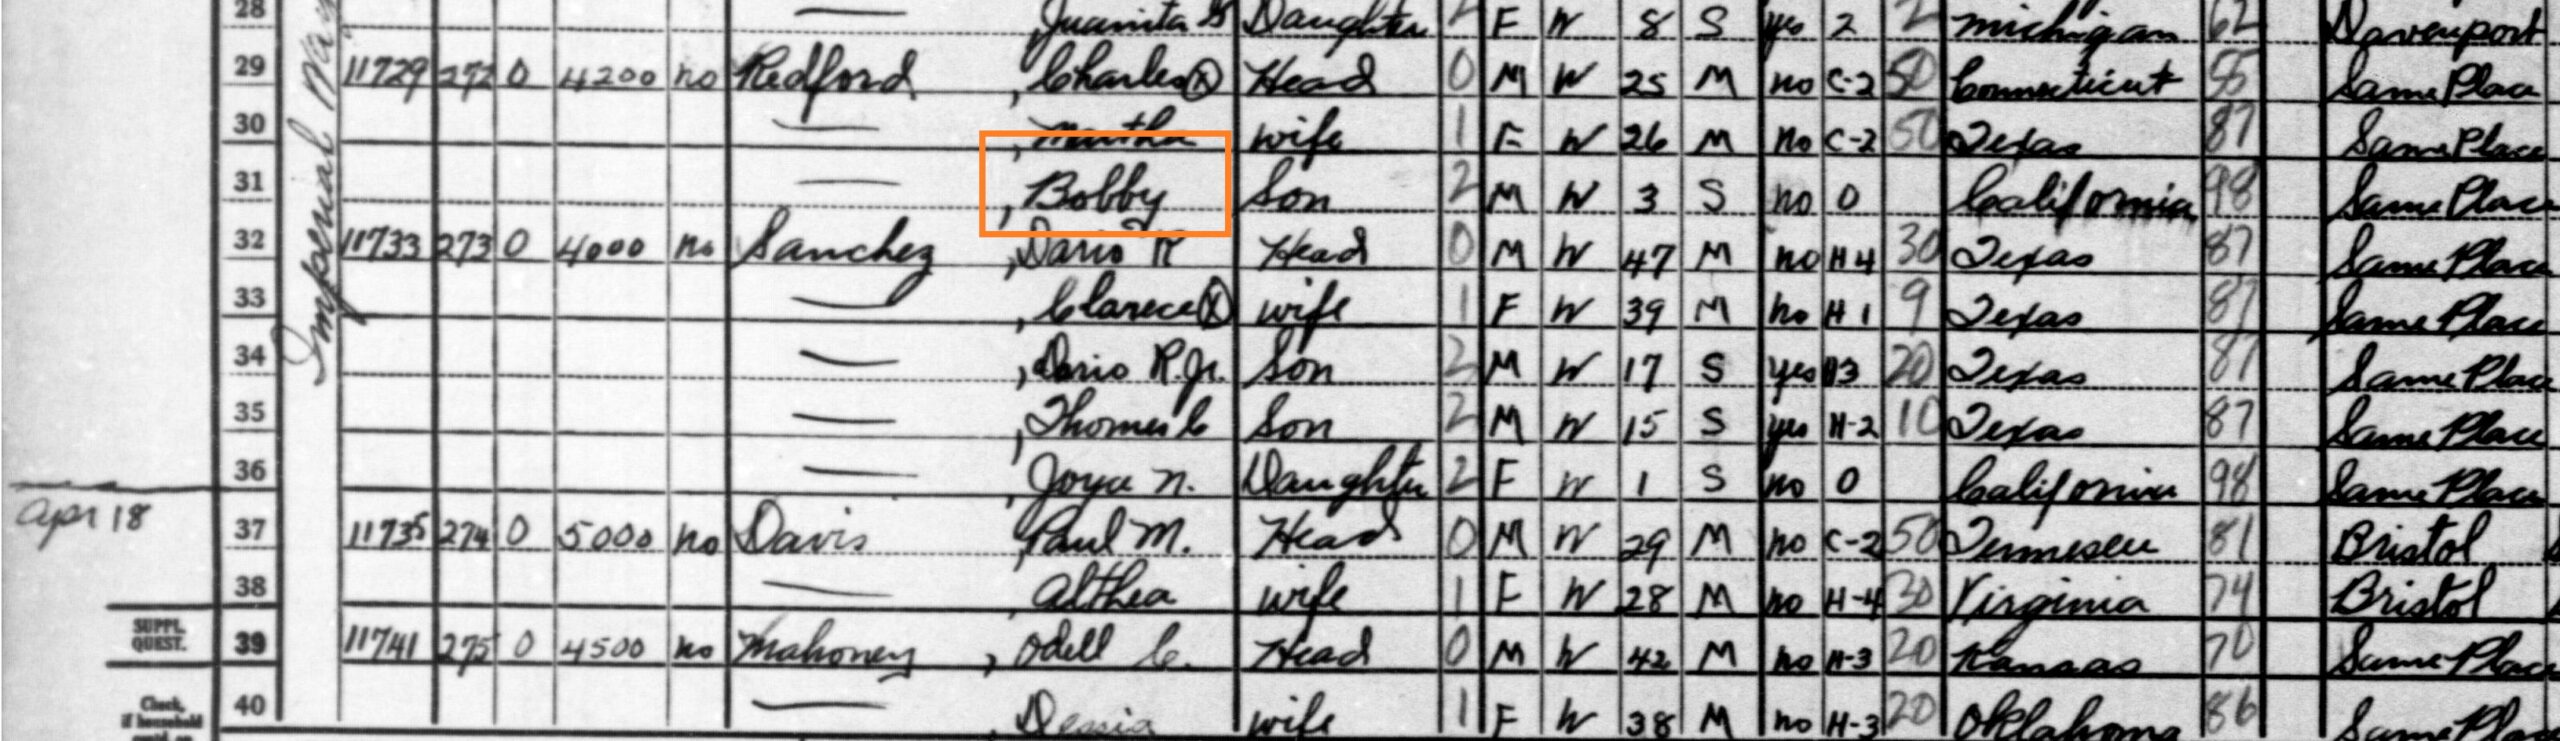 28 Juanita G Daughter 2 F W 8 S yes 2 2 Michigan 62 Davenport
29 11729 272 O 4200 no Redford , Charles Ⓧ Head 0 M W 25 M no C-2 50 Connecticut 55 Same Place
30 — , Martha wife 1 F W 26 M no C-2 50 Texas 87 Same Place
31 — , Bobby Son 2 M W 3 S no 0 California 98 Same Place
32 11733 273 O 4000 no Sanchez , Dario R Head 0 M W 47 M no H4 30 Texas 87 Same Place
33 — , Clarece Ⓧ wife 1 F W 39 M no H1 9 Texas 87 Same Place
34 — , Dario R. Jr. Son 2 M W 17 S yes H3 20 Texas 87 Same Place
35 — , Thomas C Son 2 M W 15 S yes H-2 10 Texas 87 Same Place
36 — , Joya N. Daughter 2 F W 1 S no 0 California 98 Same Place
apr 18
37 11735 274 O 5000 no Davis , Paul M. Head 0 M W 29 M no C-2 50 Tennessee 81 Bristol
38 — , Althea wife 1 F W 28 M no H-4 30 Virginia 74 Bristol
SUPPL. QUEST.
39 11741 275 O 4500 no Mahoney , Odell C. Head 0 M W 42 M no H-3 20 Kansas 70 Same Place
40 — , Dessia wife 1 F W 38 M no H-3 20 Oklahoma 86 Same Place
Check, if household
Imperial